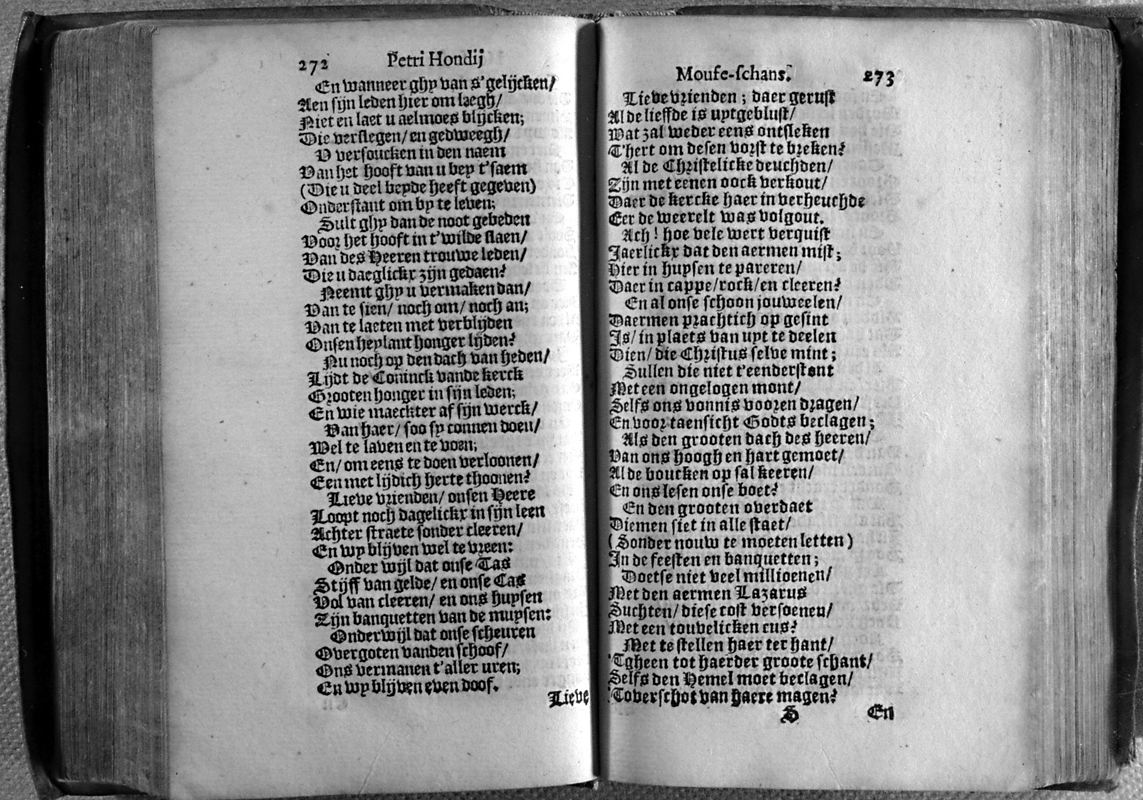 272 Petri Hondij
En wanneer ghy van s'gelijcken/
Aen sijn leden hier om laegh/
Niet en laet u aelmoes blijcken;
Die verslegen/ en gedweegh/
V versoucken in den naem
Van het hooft van u bey t'saem
(Die u deel beyde heeft gegeven)
Onderstant om by te leven;
Sult ghy dan de noot gebeden
Voor het hooft in t'wilde slaen/
Van des Heeren trouwe leden/
Die u daeglickx zijn gedaen?
Neemt ghy u vermaken dan/
Van te sien/ noch om/ noch an;
Van te laeten met verblijden
Onsen heylant honger lijden?
Nu noch op den dach van heden/
Lijdt de Coninck vande kerck
Grooten honger in sijn leden;
En wie maeckter af sijn werck/
Van haer/ soo sy connen doen/
Wel te laven en te voen;
En/ om eens te doen verloonen/
Een met lijdich herte thoonen?
Lieve vrienden/ onsen Heere
Loopt noch dagelickx in sijn leen
Achter straete sonder cleeren/
En wy blijven wel te vreen:
Onder wijl dat onse Tas
Stijff van gelde/ en onse Cas
Vol van cleeren/ en ons huysen
Zijn banquetten van de muysen:
Onderwijl dat onse scheuren
Overgoten vanden schoof/
Ons vermanen t'aller uren;
En wy blijven even doof.
Lieve
Mouse-schans. 273
Lieve vrienden; daer gerust
Al de lieffde is uytgeblust/
Wat zal weder eens ontsteken
T'hert om desen vorst te breken?
Al de Christelicke deuchden/
Zijn met eenen oock verkout/
Daer de kercke haer in verheuchde
Eer de weerelt was volgout.
Ach! hoe vele wert verquist
Jaerlickx dat den aermen mist;
Hier in huysen te pareren/
Daer in cappe/rock/en cleeren?
En al onse schoon jouweelen/
Daermen prachtich op gesint
Is/ in plaets van uyt te deelen
Dien/ die Christus selve mint;
Sullen die niet t'eenderstont
Met een ongelogen mont/
Selfs ons vonnis vooren dragen/
En voor taensicht Godts beclagen;
Als den grooten dach des heeren/
Van ons hoogh en hart gemoet/
Al de boucken op sal keeren/
En ons lesen onse boet?
En den grooten overdaet
Diemen siet in alle staet/
(Sonder nouw te moeten letten)
In de feesten en banquetten;
Doetse niet veel millioenen/
Met den aermen Lazarus
Suchten/ diese cost versoenen/
Met een touvelicken cus?
Met te stellen haer ter hant/
'Tgheen tot haerder groote schant/
Selfs den Hemel moet beclagen/
'Toverschot van haere magen?
S En